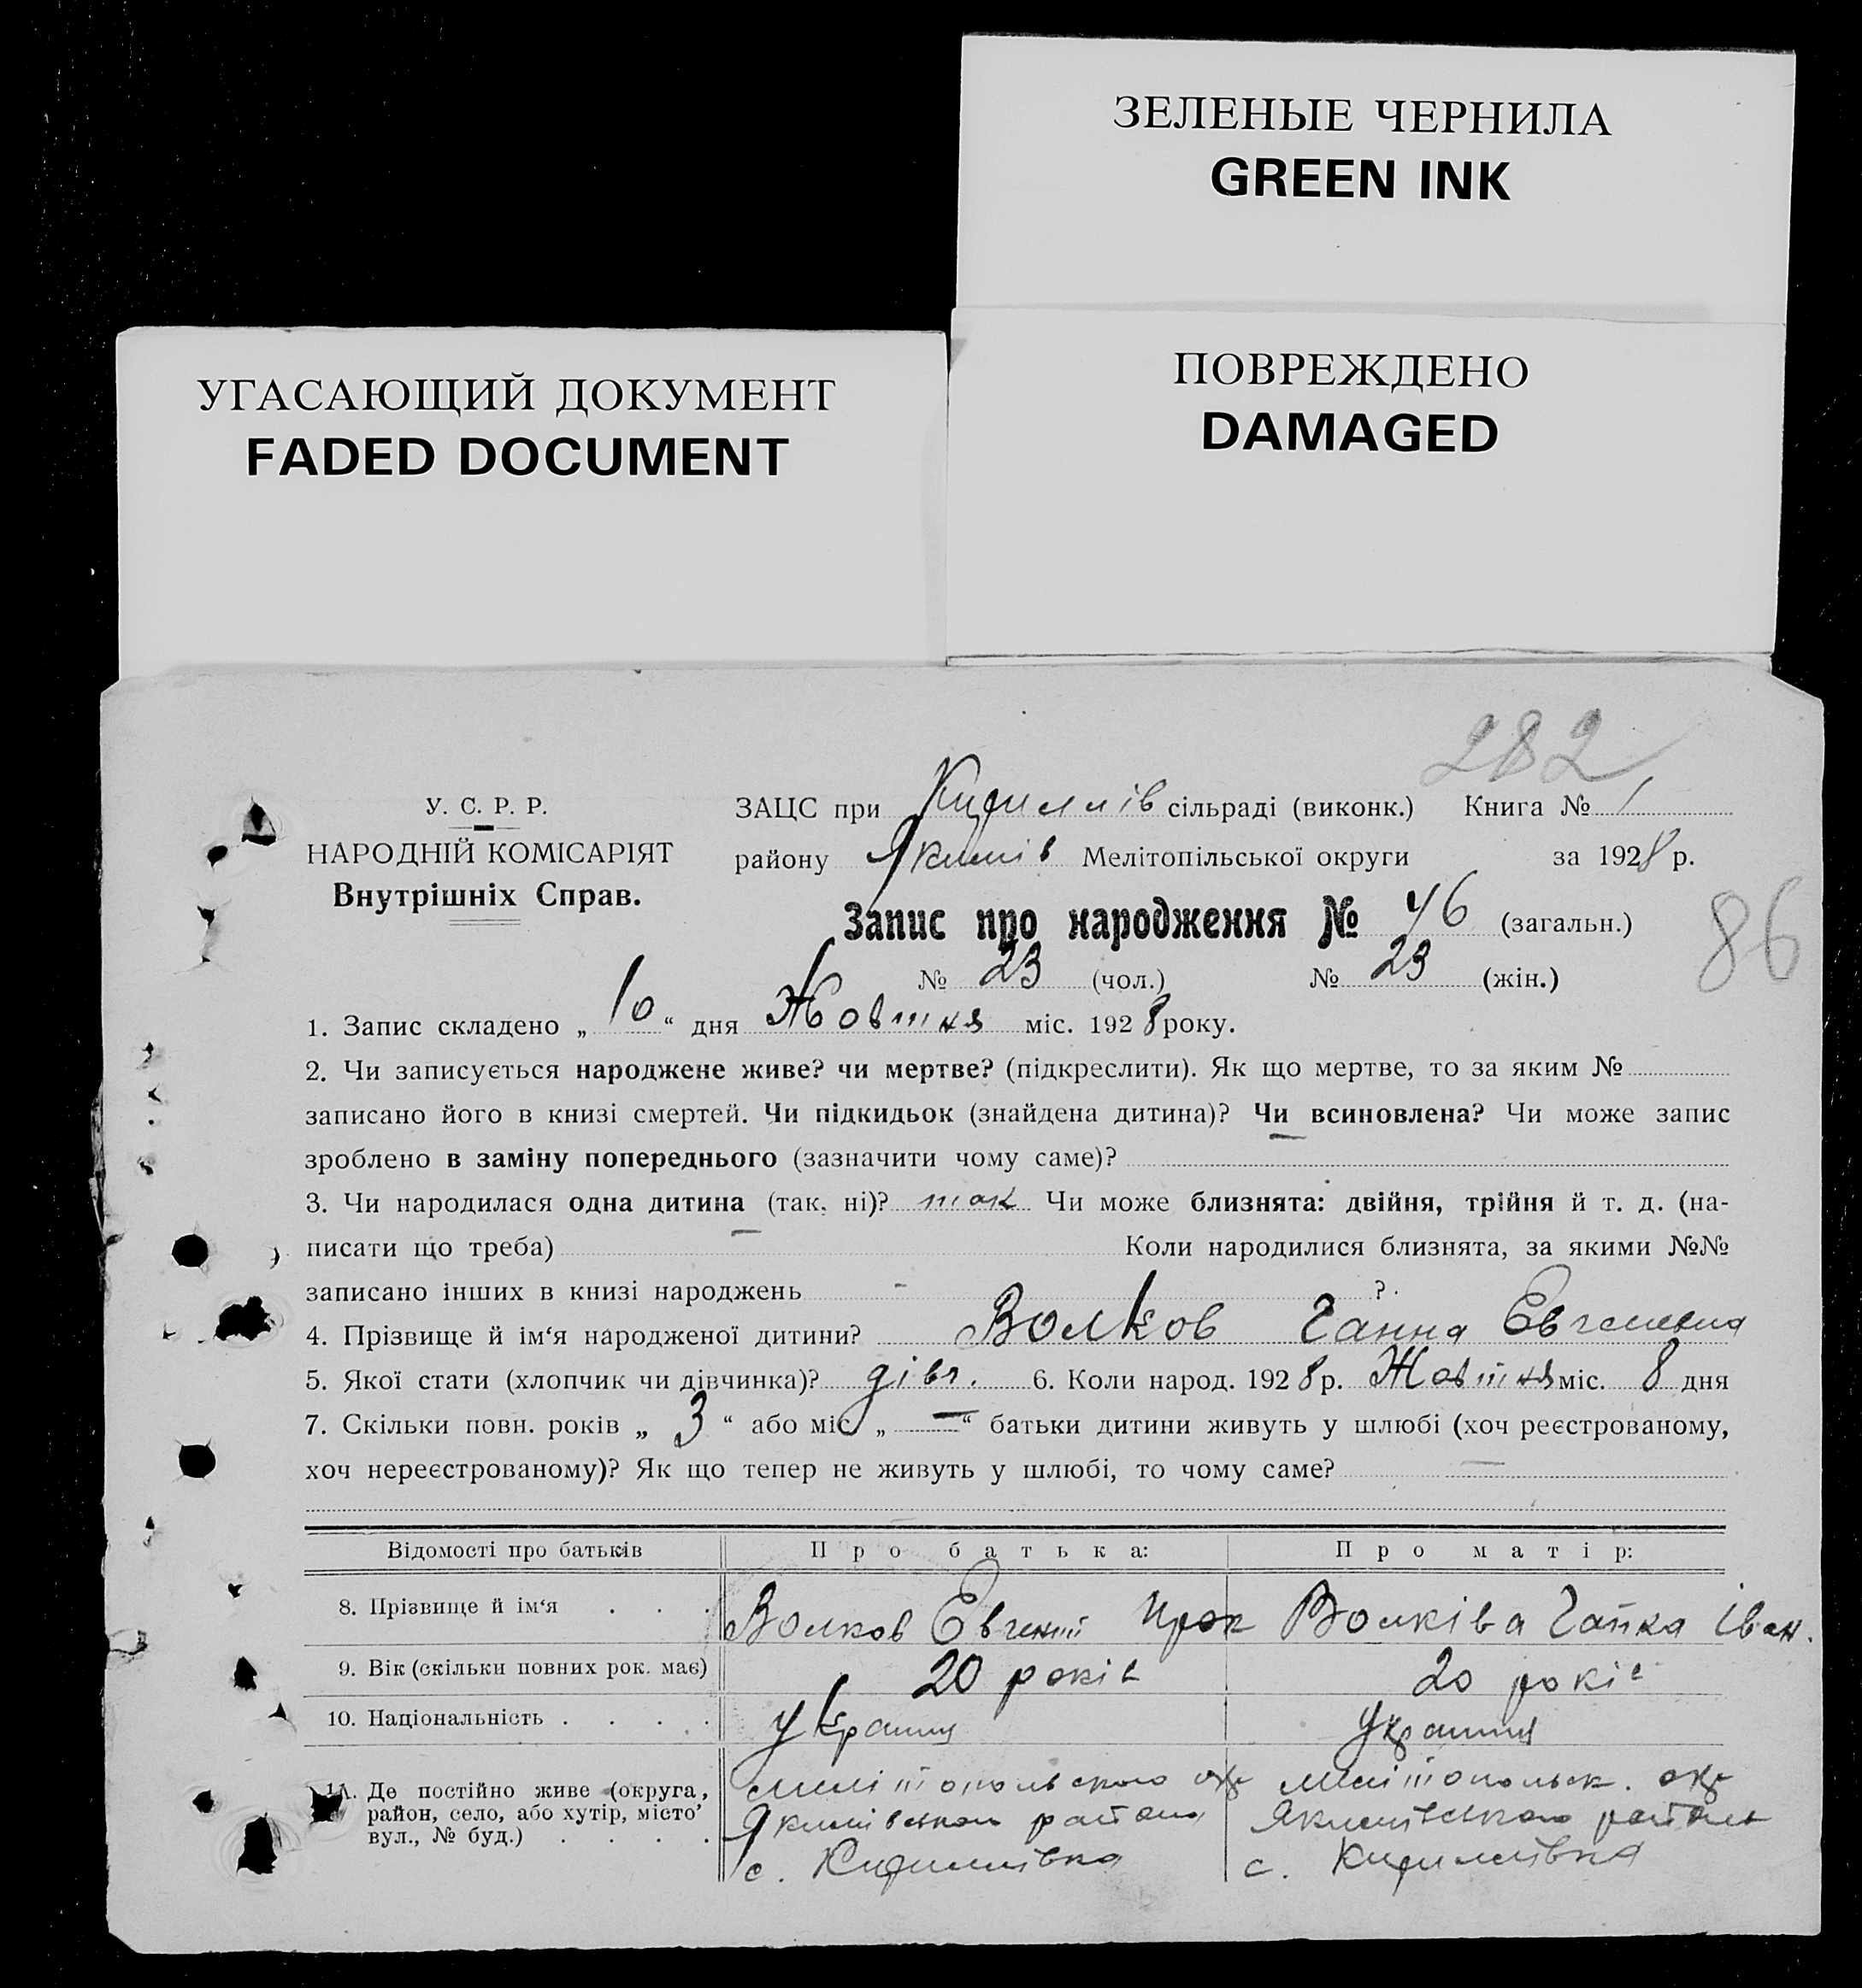 ЗЕЛЕНЫЕ ЧЕРНИЛА
GREEN INK
УГАСАЮЩИЙ ДОКУМЕНТ
FADED DOCUMENT
ПОВРЕЖДЕНО
DAMAGED
282
У. С. Р. Р.
НАРОДНІЙ КОМІСАРІЯТ
Внутрішніх Справ.
ЗАЦС при Кирилів сільраді (виконк.) Книга № 1
району Якимів Мелітопільської округи за 1928 р.
Запис про народження № 46 (загальн.)
86
№ 23 (чол.) № 23 (жін.)
1. Запис складено „ 10 “ дня Жовтня міс. 1928 року.
2. Чи записується народжене живе? чи мертве? (підкреслити). Як що мертве, то за яким №
записано його в книзі смертей. Чи підкидьок (знайдена дитина)? Чи всиновлена? Чи може запис
зроблено в заміну попереднього (зазначити чому саме)?
3. Чи народилася одна дитина (так, ні)? так Чи може близнята: двійня, трійня й т. д. (на-
писати що треба) Коли народилися близнята, за якими №№
записано інших в книзі народжень - ?
4. Прізвище й ім‘я народженої дитини? Волков Ганна Євгеневна
5. Якої стати (хлопчик чи дівчинка)? дівч. 6. Коли народ. 1928 р. Жовтня міс. 8 дня
7. Скільки повн. років „ 3 “ або міс „ — “ батьки дитини живуть у шлюбі (хоч реєстрованому,
хоч нереєстрованому)? Як що тепер не живуть у шлюбі, то чому саме? —
Відомості про батьків Про батька: Про матір:
8. Прізвище й ім‘я Волков Євгений Прок Волківа Гапка Іван.
9. Вік (скільки повних рок. має) 20 років 20 років
10. Національність українц українц
11. Де постійно живе (округа, район, село, або хутір, місто вул., № буд.)
Мелітопольского окр Мелітопольск. окр
Якимівского району Якимівського району
с. Кирилівка с. Кирилівка